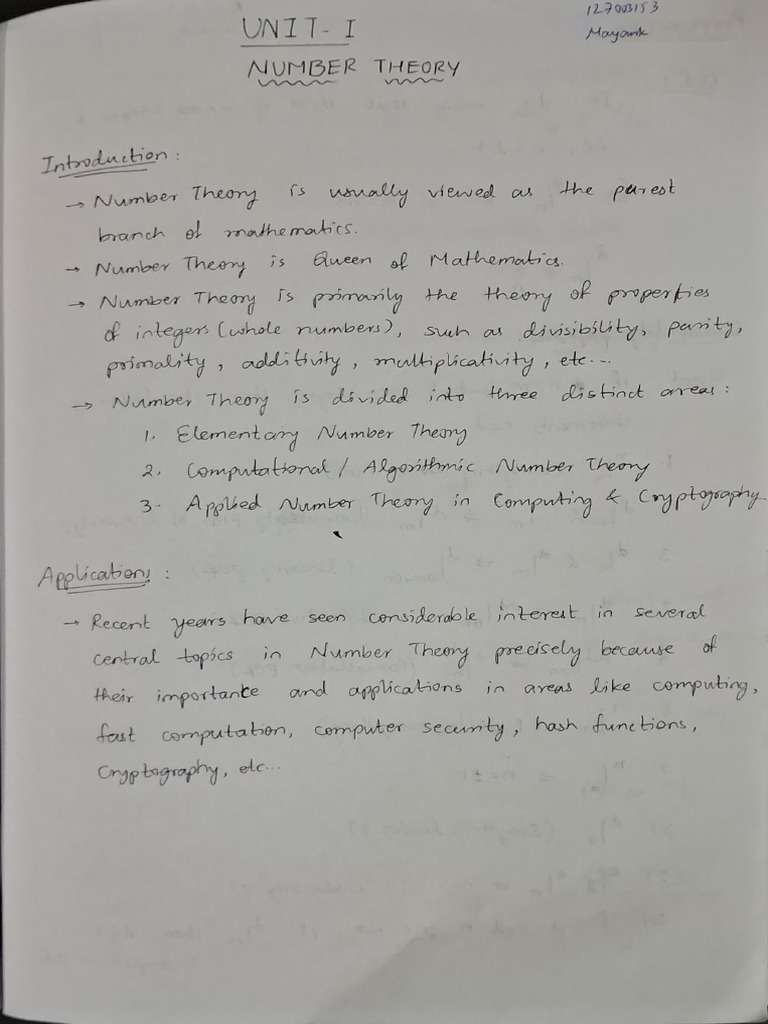 127003153
Mayank
UNIT - I
NUMBER THEORY
Introduction :
→ Number Theory is usually viewed as the purest
branch of mathematics.
→ Number Theory is Queen of Mathematics.
→ Number Theory is primarily the theory of properties
of integers (whole numbers), such as divisibility, parity,
primality, additivity, multiplicativity, etc...
→ Number Theory is divided into three distinct areas :
1. Elementary Number Theory
2. Computational / Algorithmic Number Theory
3. Applied Number Theory in Computing & Cryptography
Applications :
→ Recent years have seen considerable interest in several
central topics in Number Theory precisely because of
their importance and applications in areas like computing,
fast computation, computer security, hash functions,
Cryptography, etc...